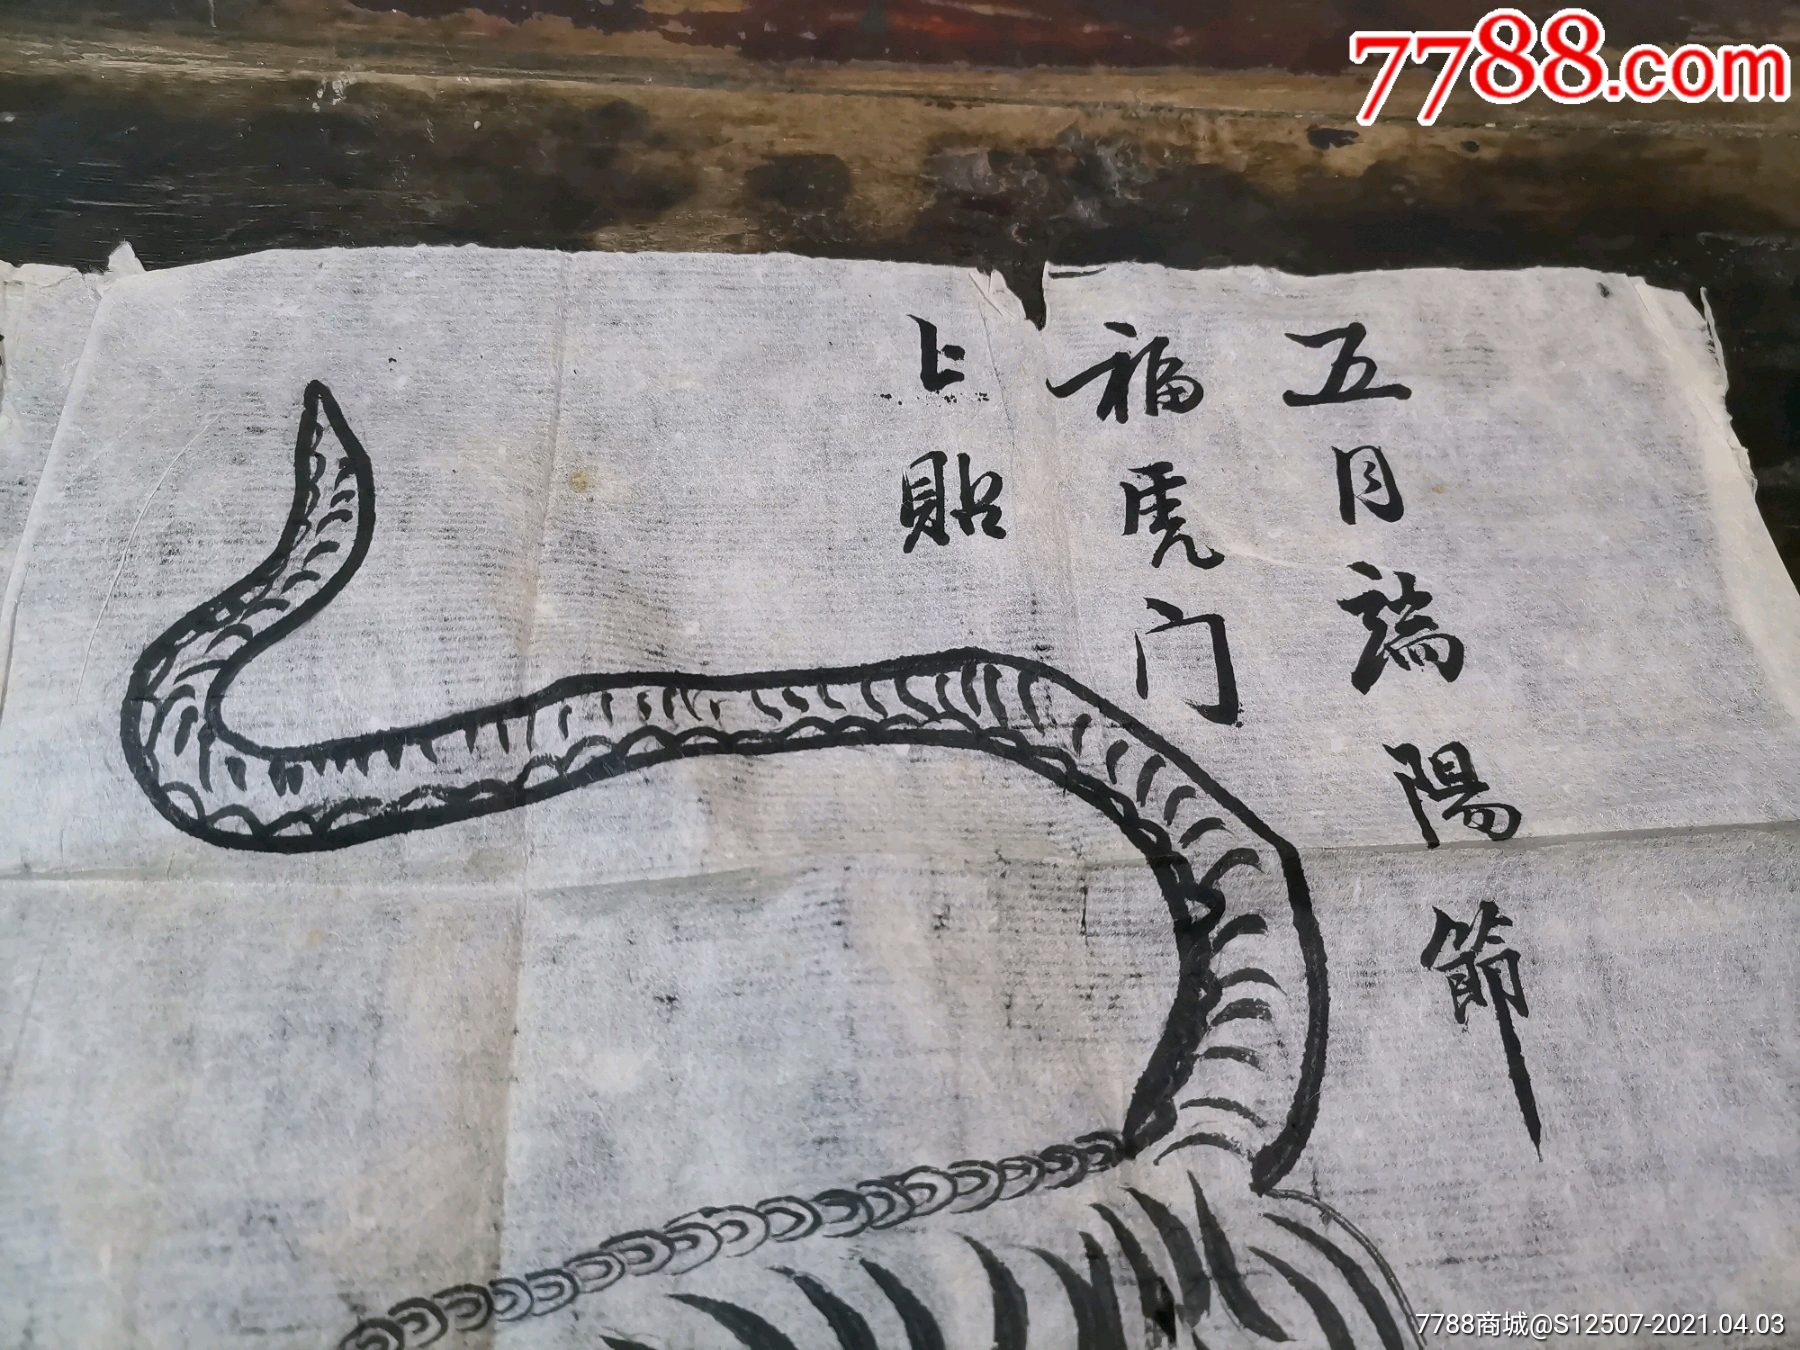 7788.com
五月端陽節
福虎门
上貼
7788商城@S12507-2021.04.03